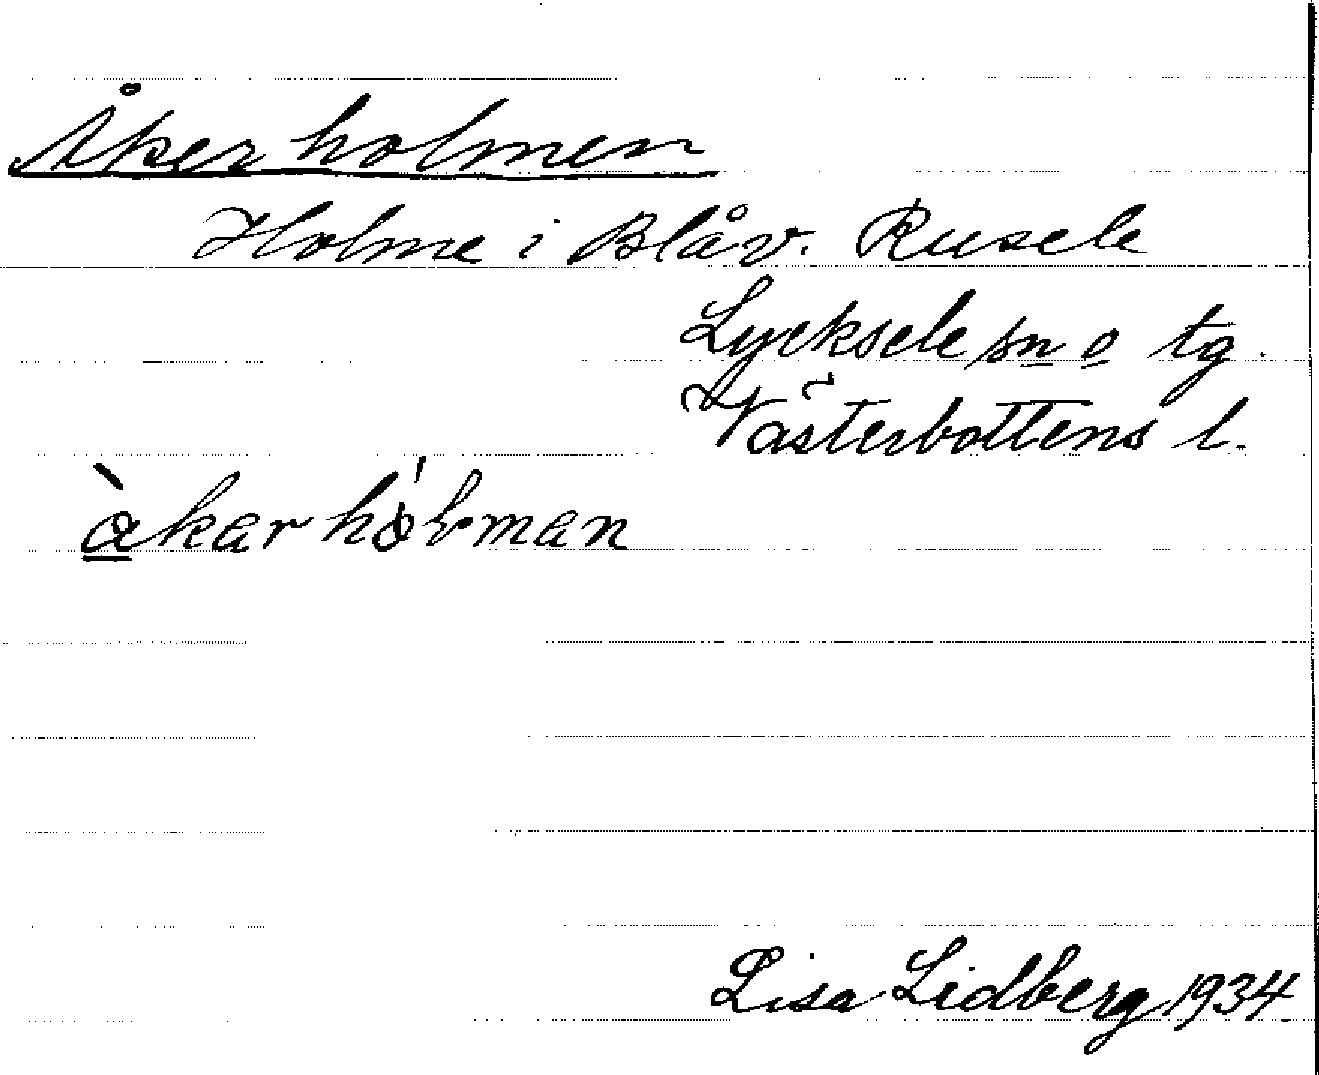 Åkerholmen
Holme i Blåv. Rusele
Lycksele sn o tg.
Västerbottens l.
àkarhólman
Lisa Lidberg 1934